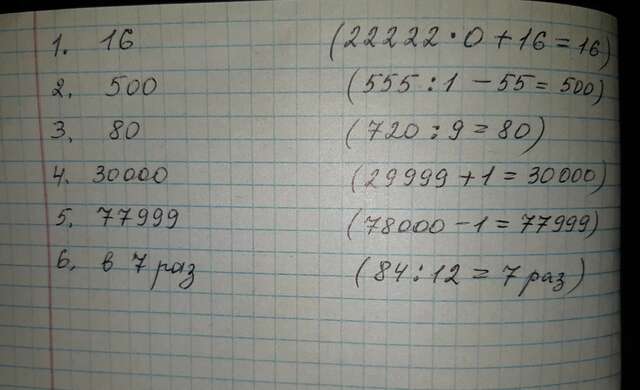 1. 16 (22222 · 0 + 16 = 16)
2. 500 (555 : 1 - 55 = 500)
3. 80 (720 : 9 = 80)
4. 30000 (29999 + 1 = 30000)
5. 77999 (78000 - 1 = 77999)
6. в 7 раз (84 : 12 = 7 раз)